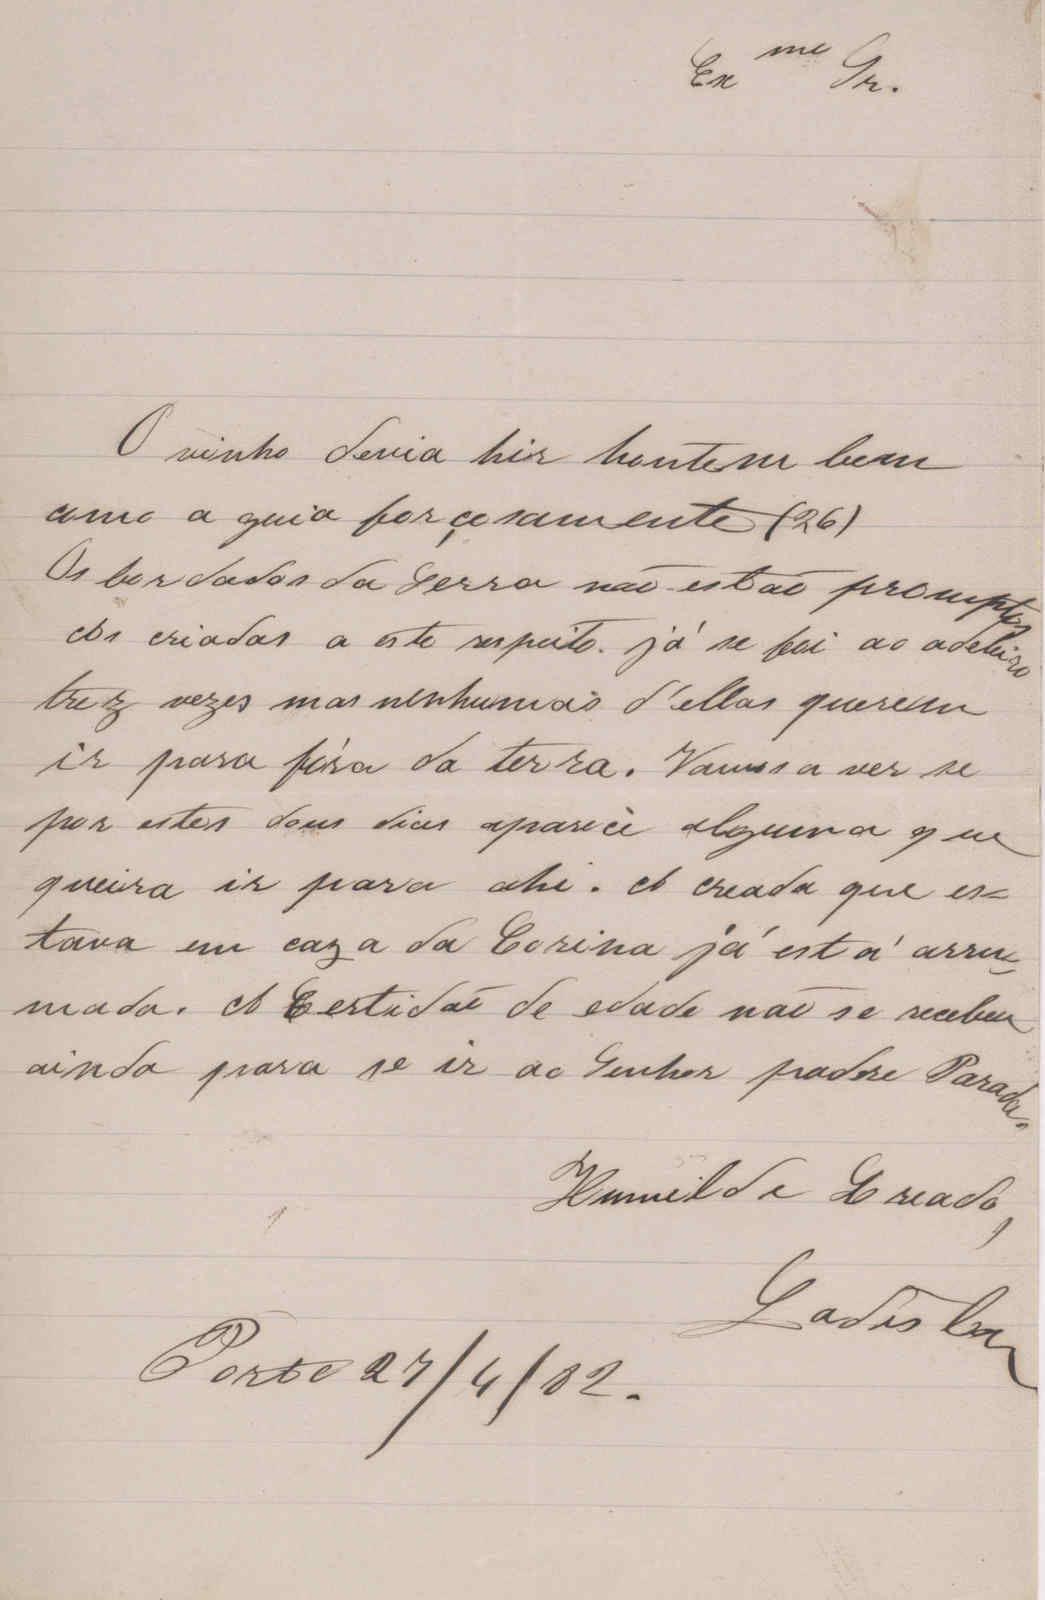 Exme Sr.
O vinho devia hir hontem bem
como a guia forçosamente (26)
Os bordados da Serra não estão promptos
As criadas a este respeito. já se foi ao adeleiro
trez vezes mas nenhumas d'ellas querem
ir para fóra da terra. Vamos a ver se
por estes dous dias aparece alguma que
queira ir para ahi. A creada que es=
tava em caza da Corina já está arru=
mada. A Certidão de edade não se recebeu
ainda para se ir ao Senhor padre Paradas.
Humilde Creado,
Ladislau
Porto 27/4/82.